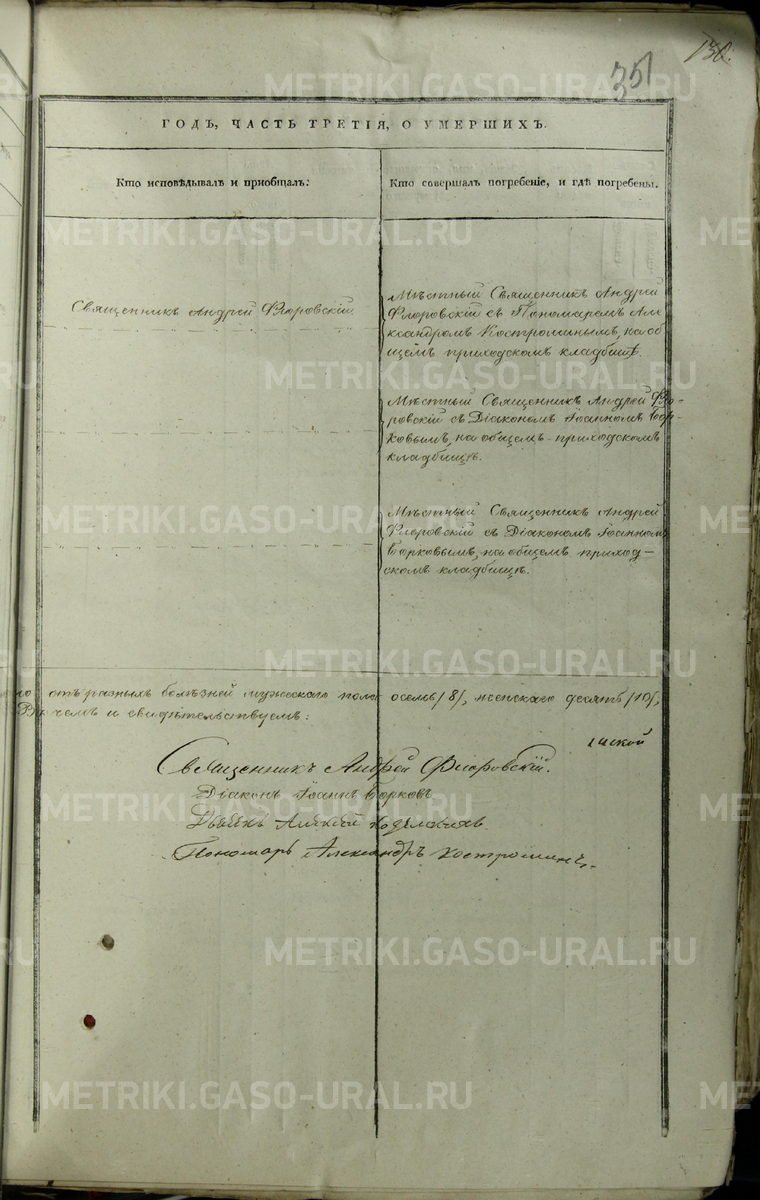 351
130.
ГОДЪ, ЧАСТЬ ТРЕТІЯ, О УМЕРШИХЪ.
Кто исповѣдывалъ и пріобщалъ:
Кто совершалъ погребеніе, и гдѣ погребены.
Священникъ Андрей Флоровскій
Мѣстный Священникъ Андрей
Флоровскій съ Пономаремъ Але
ксандромъ Костроминымъ, на об
щемъ приходскомъ кладбищѣ.
Мѣстный Священникъ Андрей Фло-
ровскій съ Діакономъ Іоанномъ
ковымъ, на общемъ приходскомъ
кладбищѣ.
Мѣстный Священникъ Андрей
Флоровскій съ Діакономъ Іоанномъ
на общемъ приход-
скомъ кладбищѣ.
отъ разныхъ болѣзней мужескаго пола осемь /8/, женскаго десять /10/,
В чемъ и свидѣтельствуемъ:
Священникъ Андрей Флоровскій.
Діаконъ Іоаннъ
Пономарь Александръ Костроминъ.
METRIKI.GASO-URAL.RU